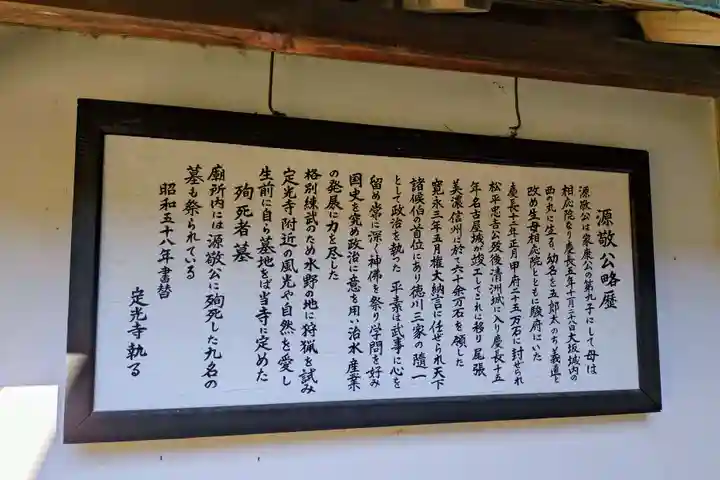 源敬公略歴
源敬公は家康公の第九子にして母は
相応院なり慶長五年十月二十八日大坂城内の
西の丸に生る幼名を五郎太のち義直と
改め生母相応院とともに駿府にいた
慶長十二年正月甲府二十五万石に封せられ
松平忠吉公歿後清洲城に入り慶長十五
年名古屋城が竣工してこれに移り尾張
美濃信州に於て六十余万石を領した
寛永三年五月権大納言に任せられ天下
諸候伯の首位にあり徳川三家の随一
として政治を執った 平素は武事に心を
留め常に深く神佛を祭り学問を好み
国史を究め政治に意を用い治水産業
の発展に力を尽した
格別練武のため水野の地に狩猟を試み
定光寺附近の風光や自然を愛し
生前に自ら墓地をば当寺に定めた
殉死者墓
廟所内には源敬公に殉死した九名の
墓も祭られている
昭和五十八年書替
定光寺執る